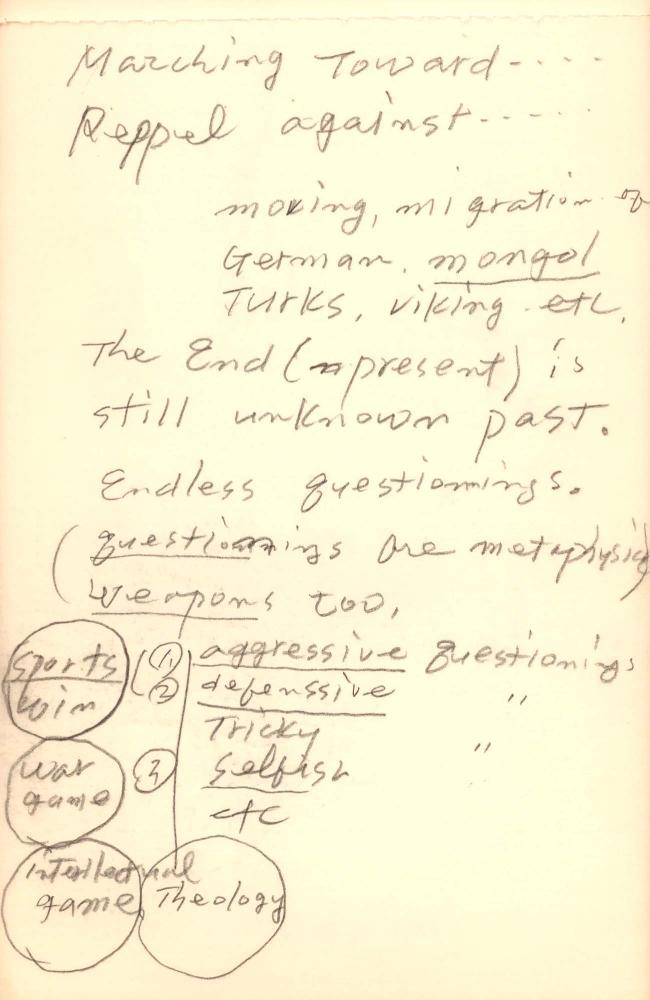 Marching Toward-....
Reppel against.....
moving, migration of
German, mongol
Turks, viking etc,
The End (present) is
still unknown past.
Endless questionings.
(questionnings are metaphysic)
weapons too,
sports ① aggressive questionings
win ② defenssive "
Tricky "
war ③ selfish
game etc
intellectual
game Theology